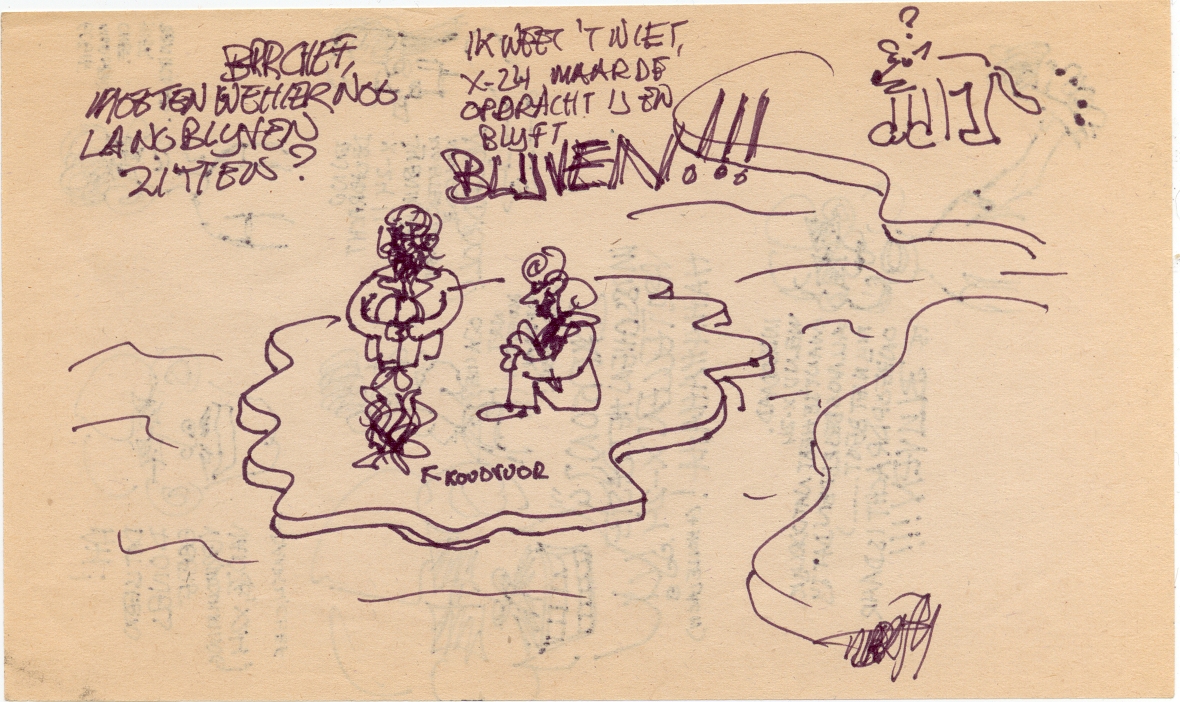 BRR CHEF,
MOETEN WE HIER NOG
LANG BLIJVEN
ZITTEN ?
IK WEET 'T NIET,
X-24 MAAR DE
OPDRACHT IS EN
BLIJFT
BLIJVEN!!!
?
KOUDVUUR